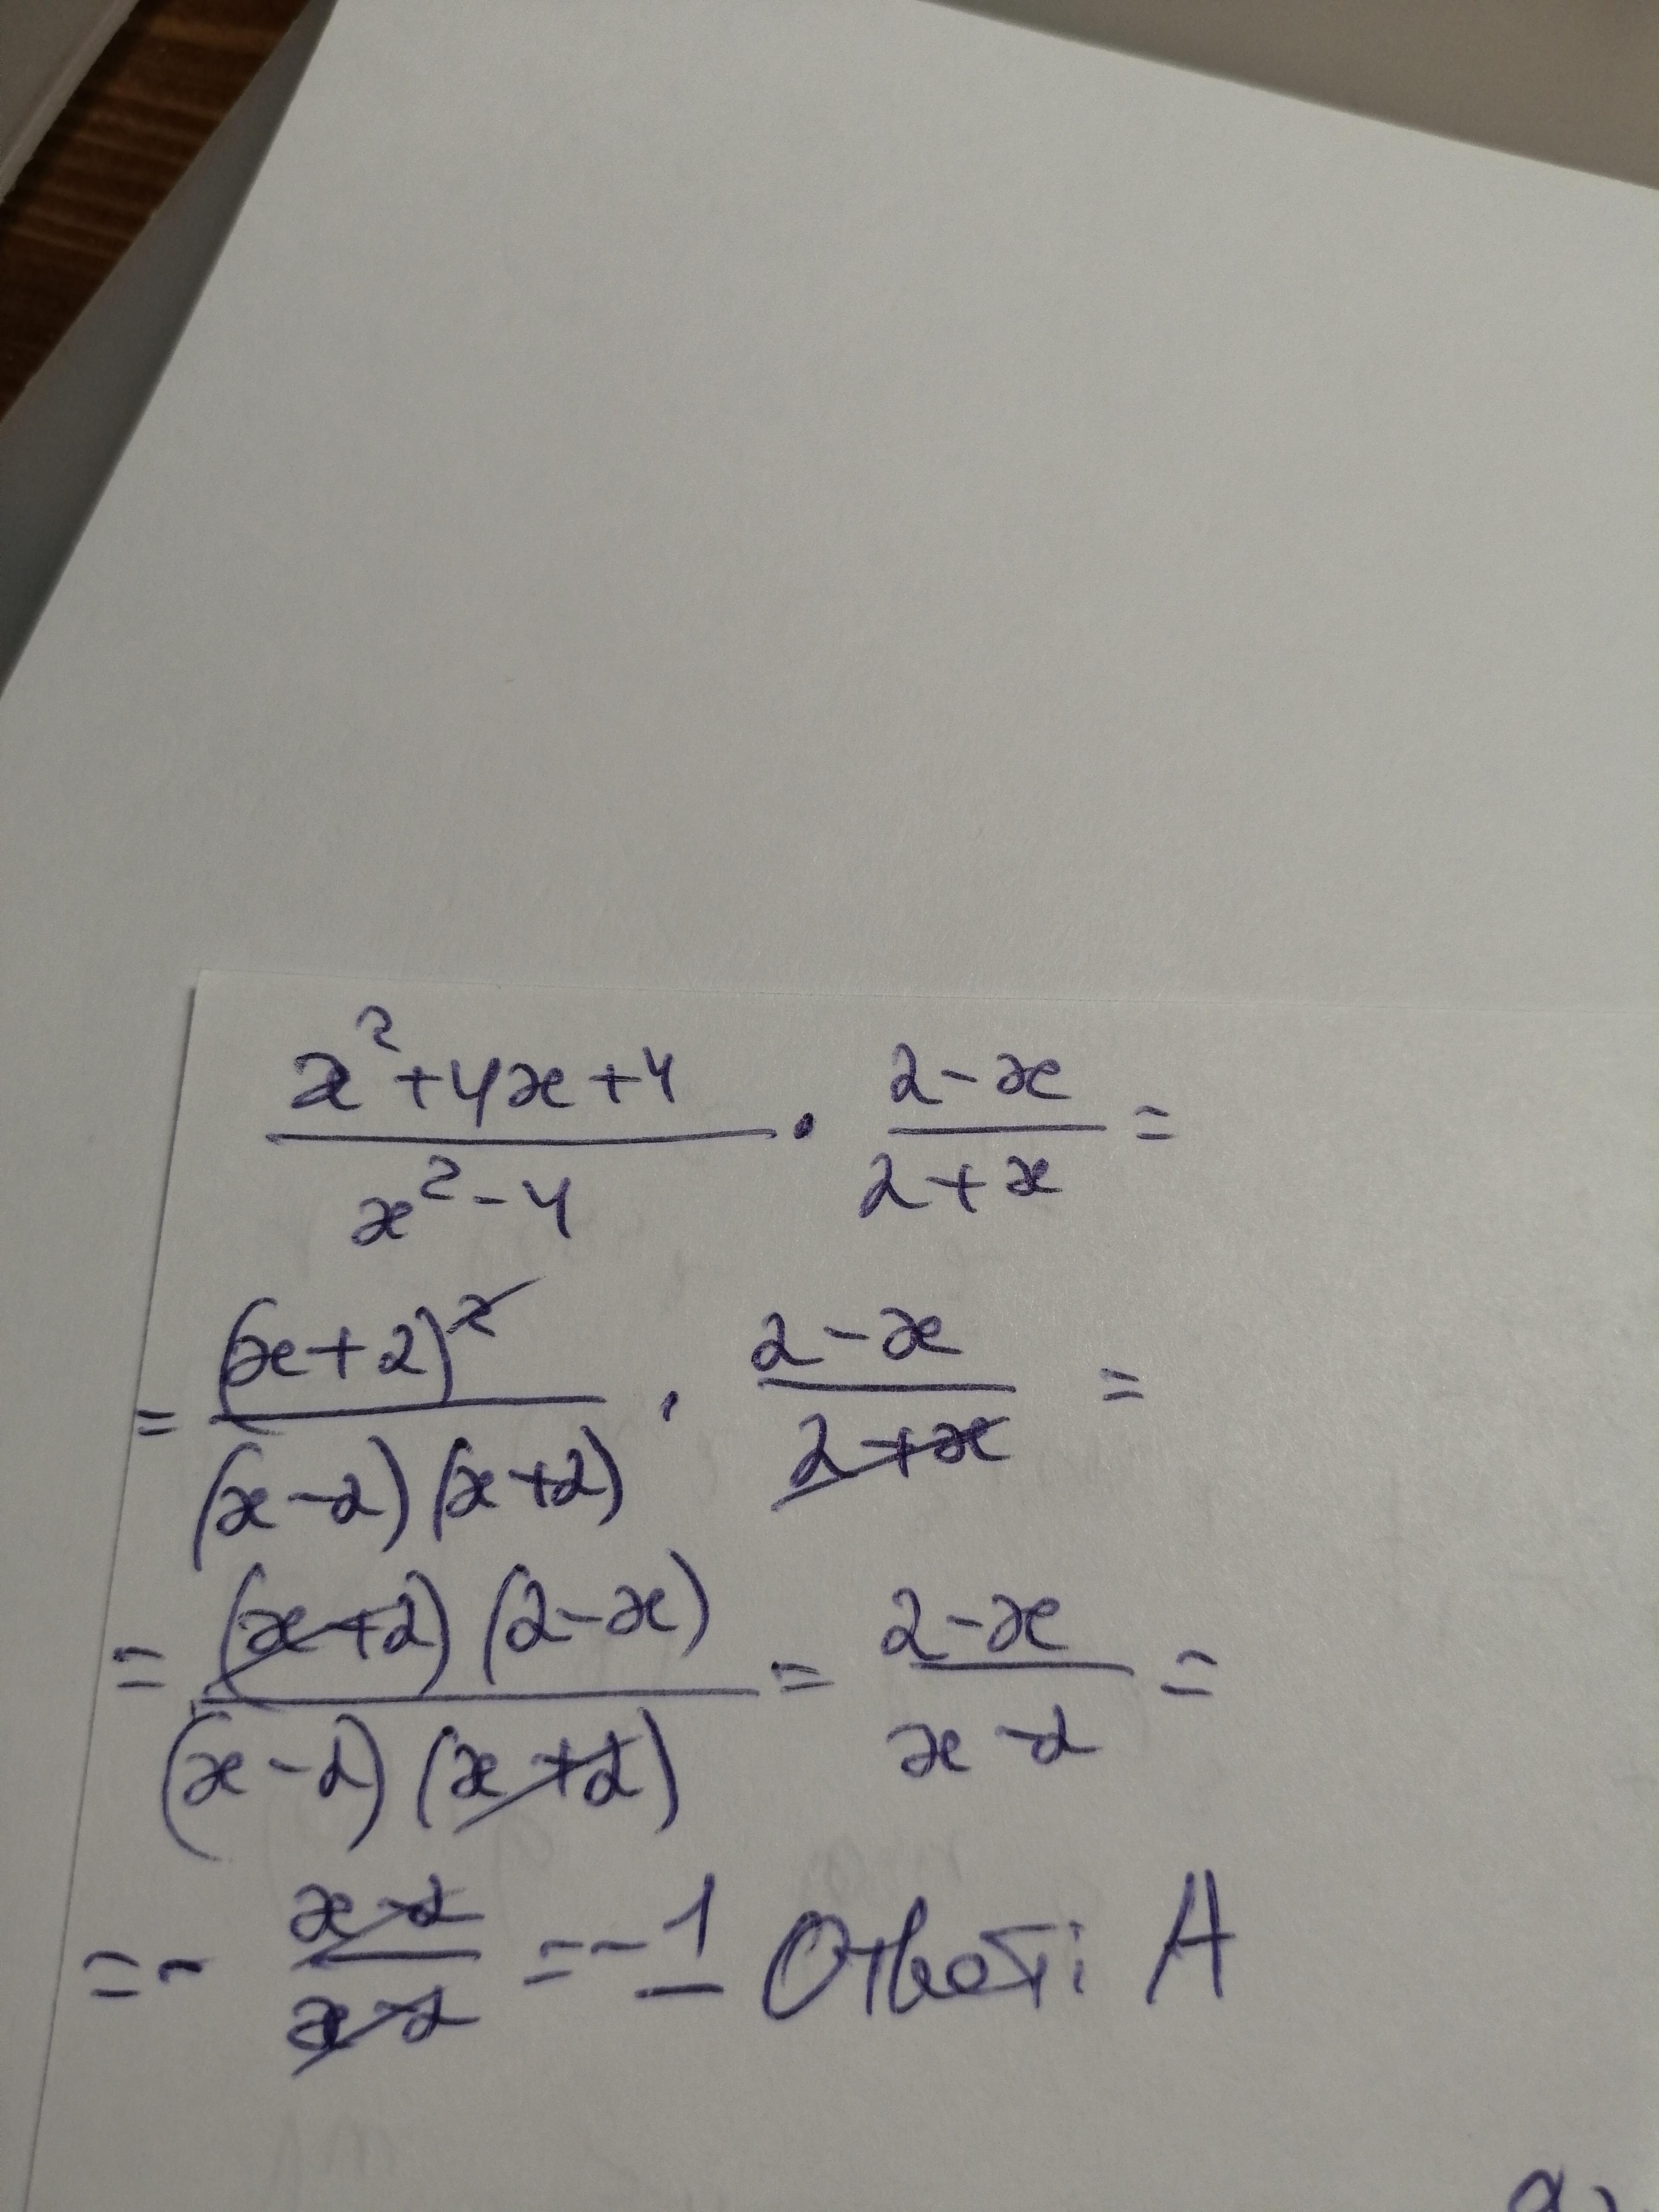 x²+4x+4 / x²-4 · 2-x / 2+x =
= (x+2)² / (x-2)(x+2) · 2-x / 2+x =
= (x+2)(2-x) / (x-2)(x+2) = 2-x / x-2 =
= - x-2 / x-2 = -1 Ответ: А